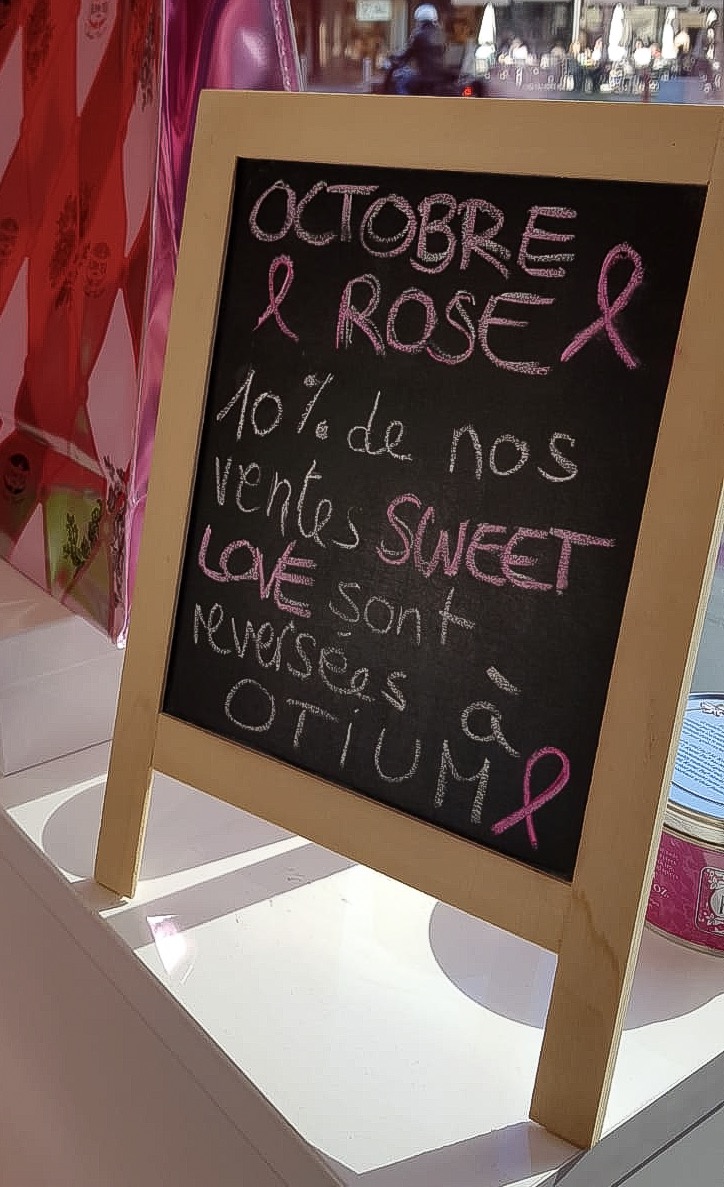 OCTOBRE
ROSE
10% de nos
ventes SWEET
LOVE sont
reversées à
OTiUM